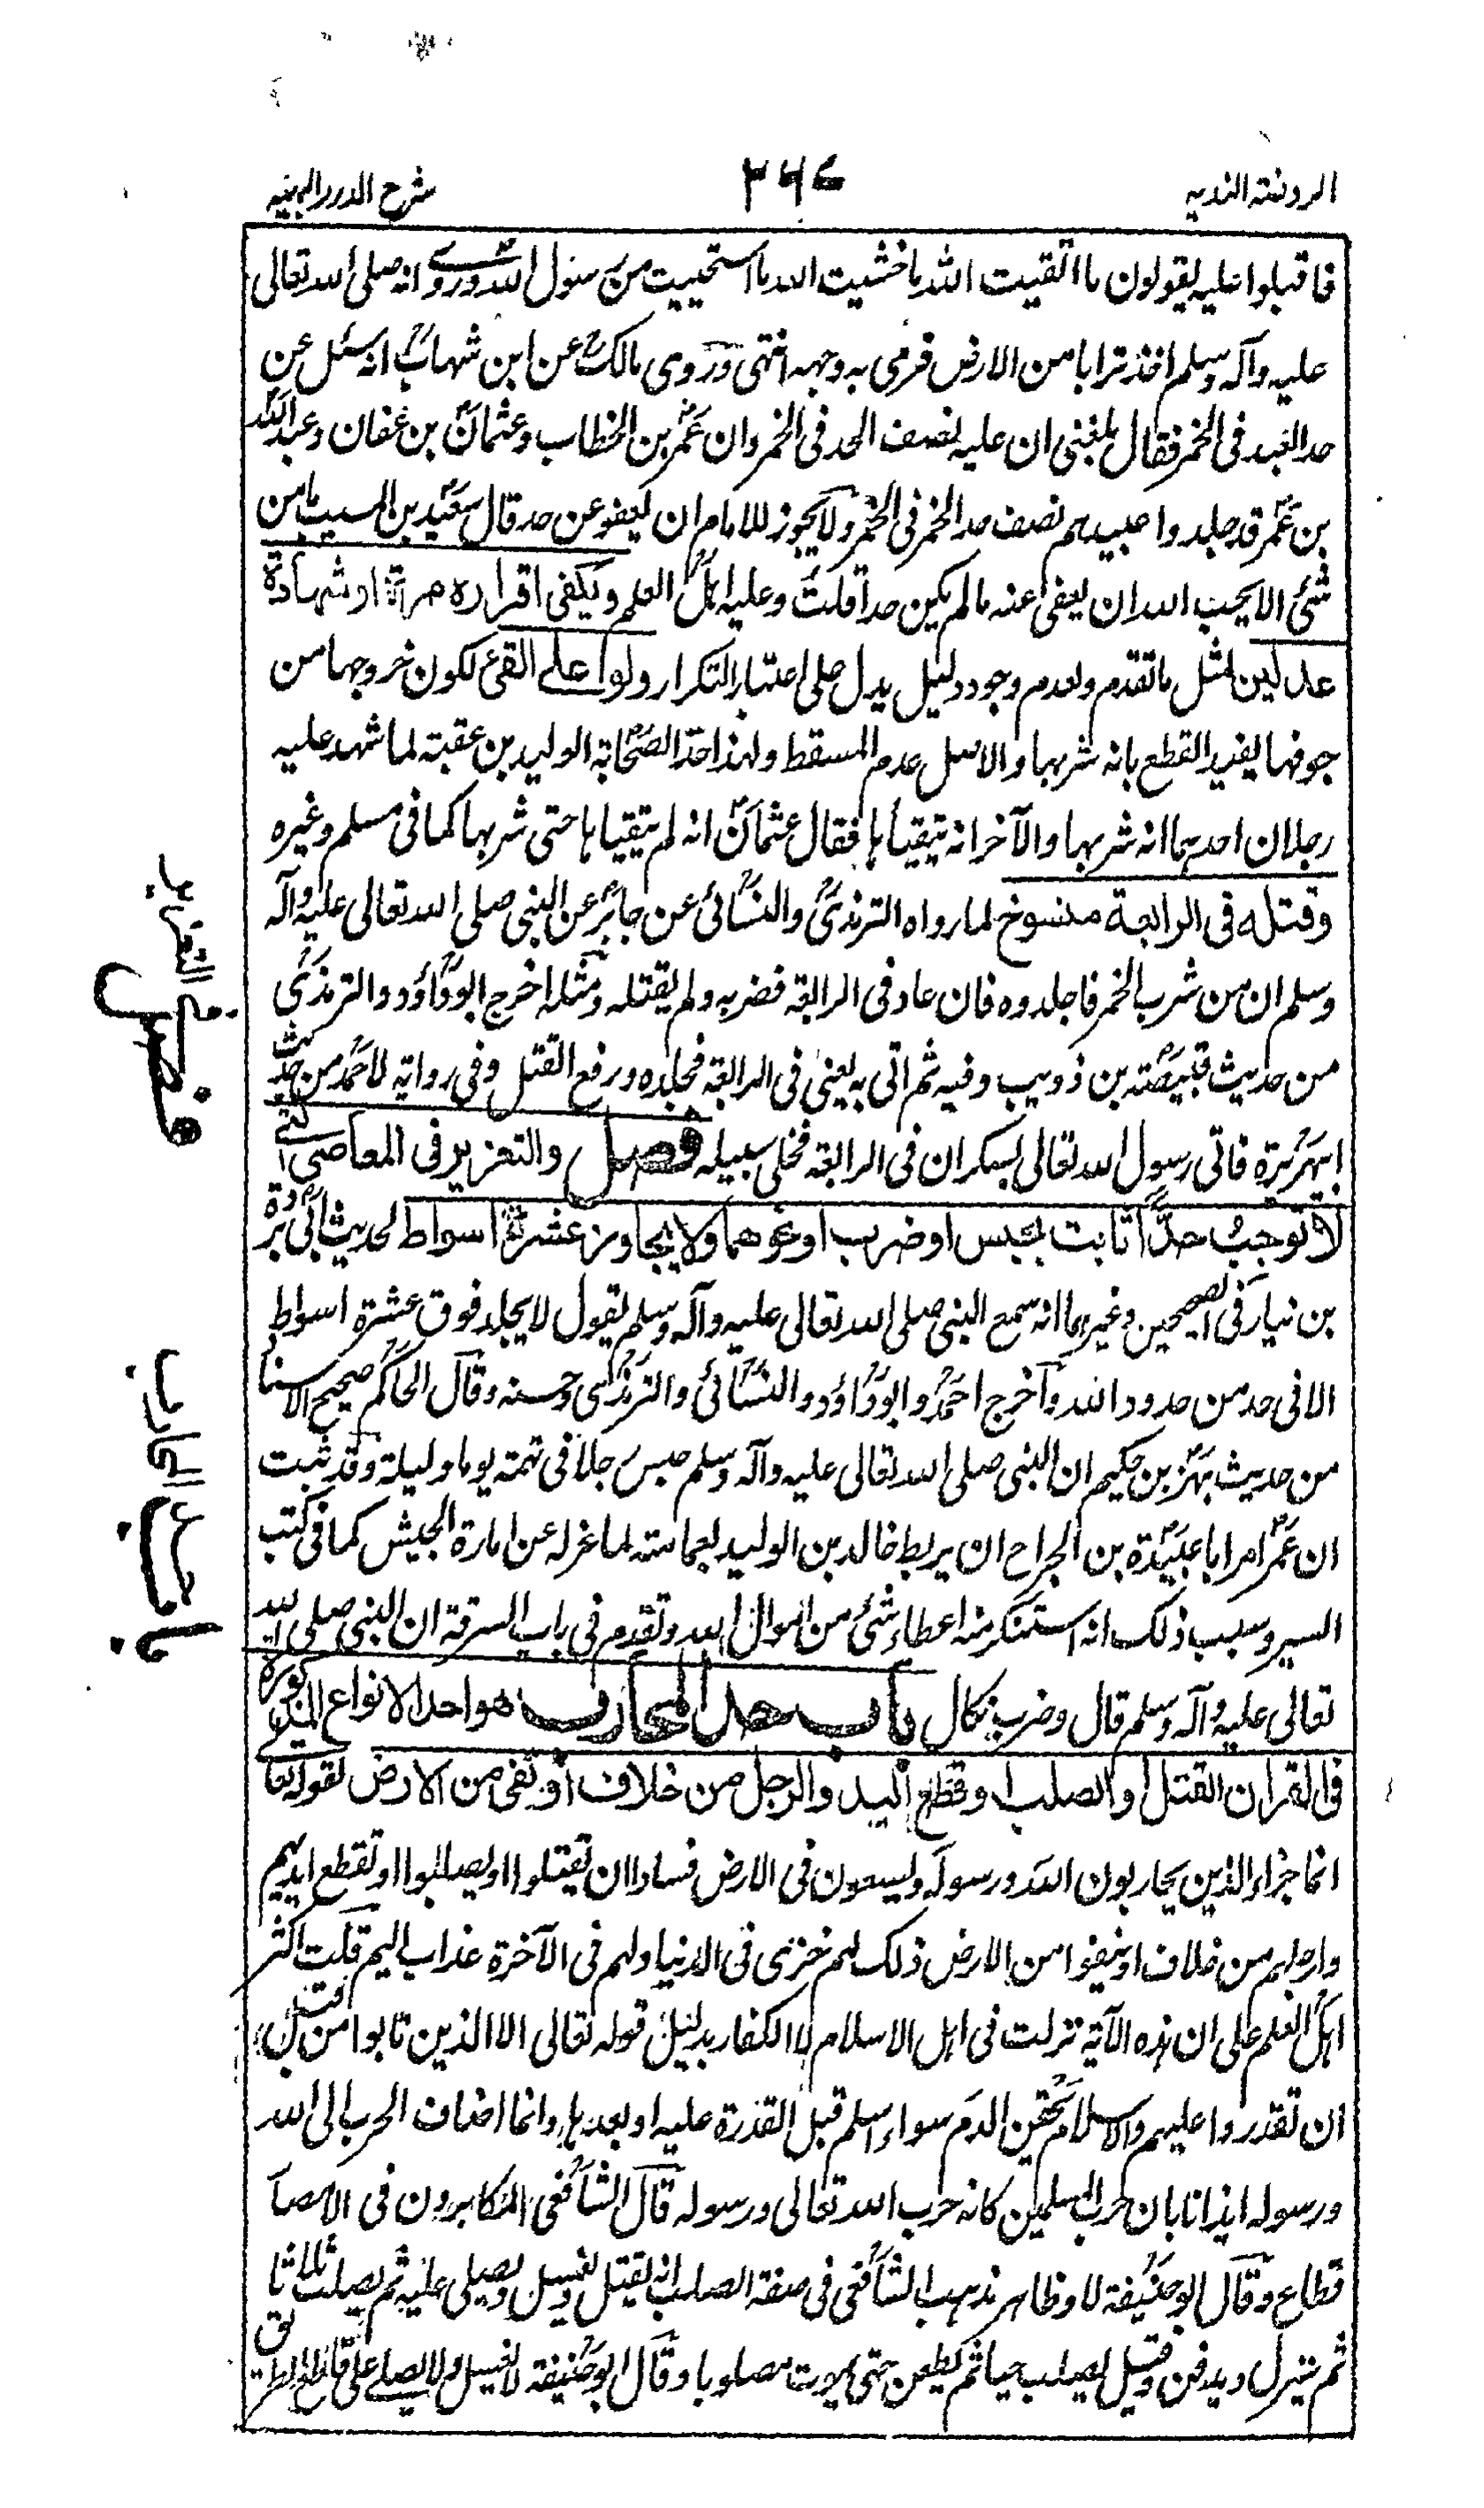 الروضة الندية
٣٦٧
شرح الدرر البهية
فاقبلوا عليه يقولون ما اتقيت الله ما خشيت الله ما استحييت من رسول الله وروى انه صلى الله تعالى
عليه وآله وسلم اخذ ترابا من الارض فرمى به وجهه انتهى وروى مالك عن ابن شهاب انه سئل عن
حد العبد فى الخمر فقال بلغنى ان عليه نصف الحد فى الخمر وان عمر بن الخطاب وعثمان بن عفان وعبد الله
بن عمر قد جلدوا عبيدهم نصف حد الخمر فى الخمر ولا يجوز للامام ان يعفو عن حد قال سعيد بن المسيب ما من
شئ الا يحب الله ان يعفى عنه ما لم يكن حدا قلت وعليه اهل العلم ويكفى اقراره مرة او شهادة
عدلين لمثل ما تقدم ولعدم وجود دليل يدل على اعتبار التكرار ولو على القئ لكون خروجها من
جوفها يفيد القطع بانه شربها والاصل عدم المسقط ولهذا حد الصحابة الوليد بن عقبة لما شهد عليه
رجلان احدهما انه شربها والآخر انه يتقيأها فقال عثمان انه لم يتقياها حتى شربها كما فى مسلم وغيره
وقتله فى الرابعة منسوخ لما رواه الترمذى والنسائى عن جابر عن النبى صلى الله تعالى عليه وآله
وسلم ان من شرب الخمر فاجلدوه فان عاد فى الرابعة فضربه ولم يقتله ومثله اخرج ابوداؤد والترمذى
من حديث قبيصة بن ذويب وفيه ثم اتى به يعنى فى الرابعة فجلده ورفع القتل وفى رواية لاحمد من حديث
ابى هريرة فاتى رسول الله تعالى بسكران فى الرابعة فخلى سبيله فصل والتعزير فى المعاصى التى
لا توجب حدا ثابت بحبس او ضرب او نحوهما ولا يجاوز عشرة اسواط لحديث ابى بردة
بن نيار فى الصحيحين وغيرهما انه سمع النبى صلى الله تعالى عليه وآله وسلم يقول لا يجلد فوق عشرة اسواط
الا فى حد من حدود الله واخرج احمد وابوداؤد والنسائى والترمذى وحسنه وقال الحاكم صحيح الاسناد
من حديث بهز بن حكيم ان النبى صلى الله تعالى عليه وآله وسلم حبس رجلا فى تهمة يوما وليلة وقد ثبت
ان عمر امر ابا عبيدة بن الجراح ان يربط خالد بن الوليد بعمامته لما عزله عن امارة الجيش كما فى كتب
السير وسبب ذلك انه استنكر منه اعطاء شئ من اموال الله وتقدم فى باب السرقة ان النبى صلى الله
تعالى عليه وآله وسلم قال وضرب نكال باب حد المحارب هو احد الانواع المذكورة
فى القران القتل او الصلب او قطع اليد والرجل من خلاف او نفى من الارض لقوله تعالى
انما جزاء الذين يحاربون الله ورسوله ويسعون فى الارض فسادا ان يقتلوا او يصلبوا او تقطع ايديهم
وارجلهم من خلاف او ينفوا من الارض ذلك لهم خزى فى الدنيا ولهم فى الآخرة عذاب اليم قلت اكثر
اهل العلم على ان هذه الآية نزلت فى اهل الاسلام لا الكفار بدليل قوله تعالى الا الذين تابوا من قبل
ان تقدروا عليهم والاسلام يحقن الدم سواء اسلم قبل القدرة عليه او بعدها وانما اضاف الحرب الى الله
ورسوله ايذانا بان حرب المسلمين كانه حرب الله تعالى ورسوله قال الشافعى المكابرون فى الامصار
قطاع وقال ابوحنيفة لا وظاهر مذهب الشافعى فى صفة الصلب انه يقتل ويغسل ويصلى عليه ثم يصلب ثلاثا
ثم ينزل ويدفن وقيل يصلب حيا ثم يطعن حتى يموت مصلوبا وقال ابوحنيفة لا يغسل ولا يصلى على قاطع الطريق
فصل فى التعزير
باب حد المحارب